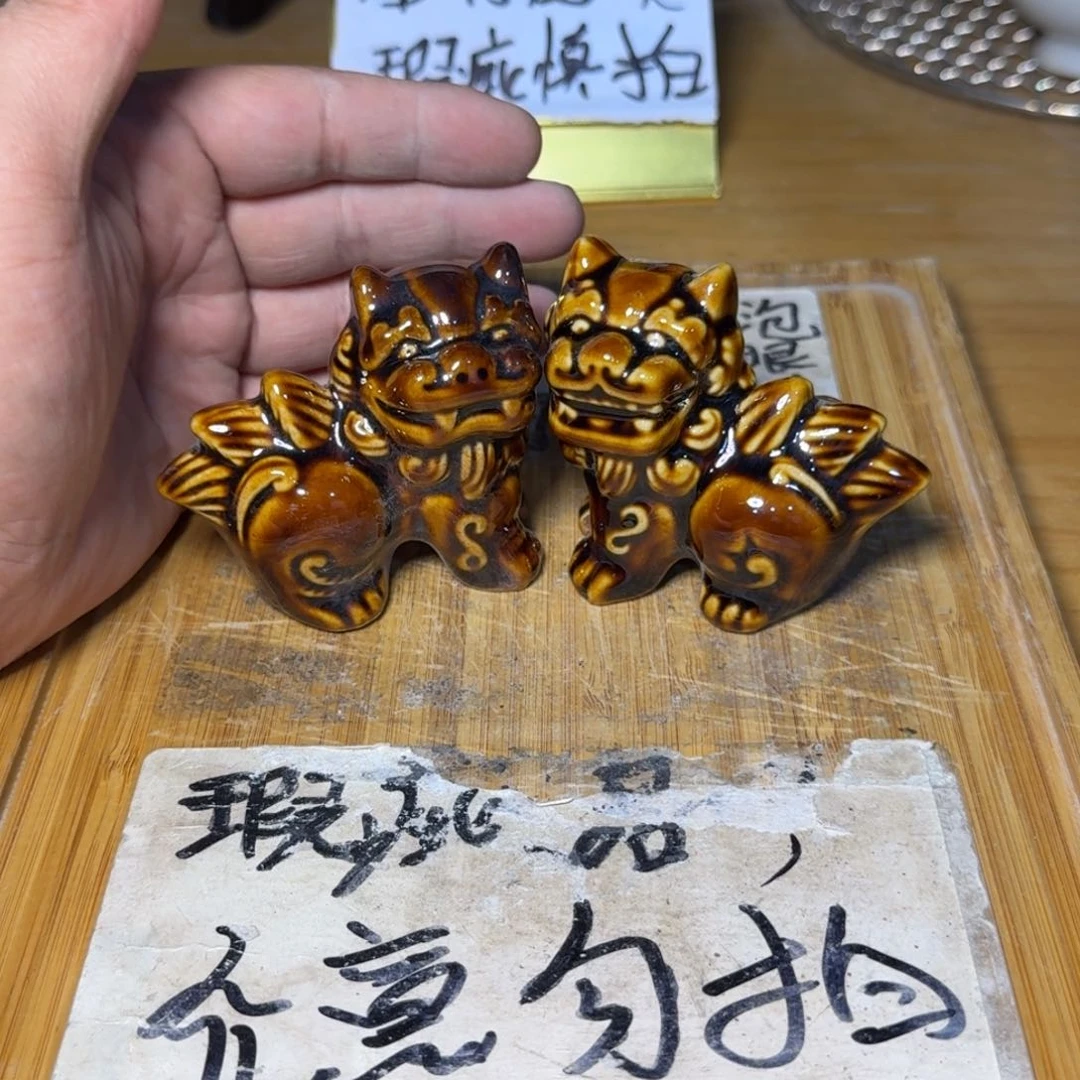 瑕疵慎拍
泡
眼
瑕疵品，
介意勿拍